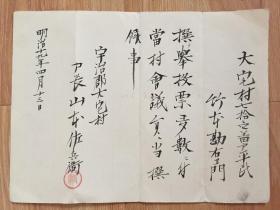 大宅村六拾六番戸平民
竹本勘右衛門
撰擧投票多数ニ付
當村會議員当撰
候事
宇治郡大宅村
戸長山本佐兵衛
明治十九年四月十三日